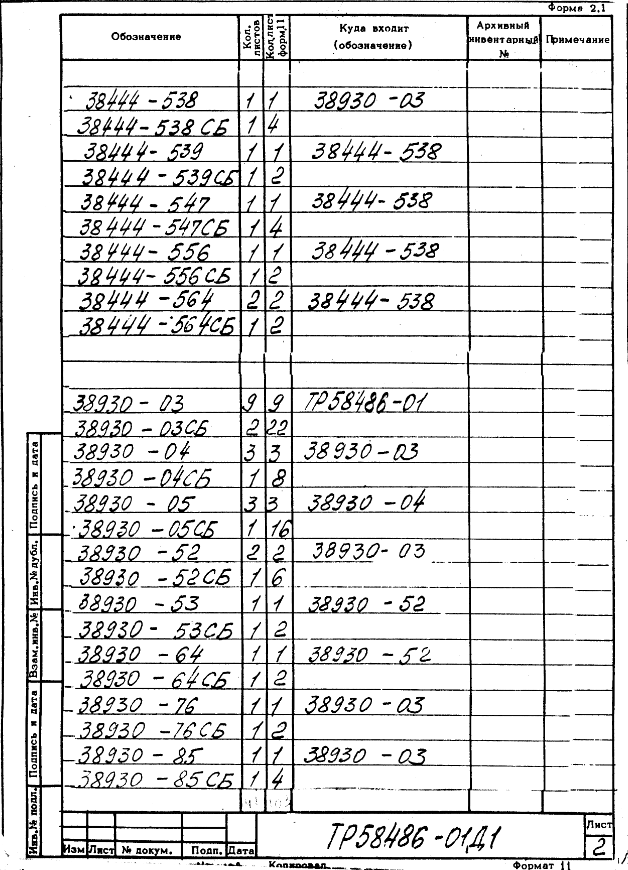 Форма 2.1
Обозначение Кол. листов Кол.лист форм.11 Куда входит (обозначение) Архивный инвентарный № Примечание
38444-538 1 1 38930-03
38444-538 СБ 1 4
38444-539 1 1 38444-538
38444-539СБ 1 2
38444-547 1 1 38444-538
38444-547СБ 1 4
38444-556 1 1 38444-538
38444-556СБ 1 2
38444-564 2 2 38444-538
38444-564СБ 1 2
38930-03 9 9 ТР58486-01
38930-03СБ 2 22
38930-04 3 3 38930-03
38930-04СБ 1 8
38930-05 3 3 38930-04
38930-05СБ 1 16
38930-52 2 2 38930-03
38930-52СБ 1 6
38930-53 1 1 38930-52
38930-53СБ 1 2
38930-64 1 1 38930-52
38930-64СБ 1 2
38930-76 1 1 38930-03
38930-76СБ 1 2
38930-85 1 1 38930-03
38930-85СБ 1 4
Подпись и дата
Инв.№ дубл.
Взам.инв.№
Подпись и дата
Инв.№ подл.
Изм Лист № докум. Подп. Дата
ТР58486-01Д1
Лист
2
Копировал Формат 11